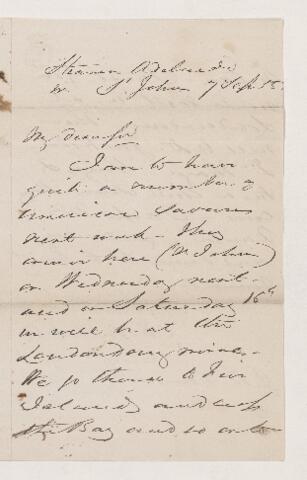 Steamer Adelaide
St. John 7 Sept
My dear Sir
I am to have
quite a number of
American Savans
next week. They
arrive here (St John)
on Wednesday next
and on Saturday 16th
we will be at the
Londonderry mines.
We go thence to Five
Islands and cross
the Bay and so on to